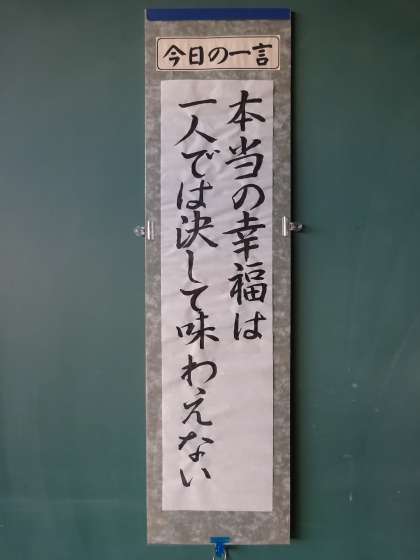 今日の一言
本当の幸福は
一人では決して味わえない